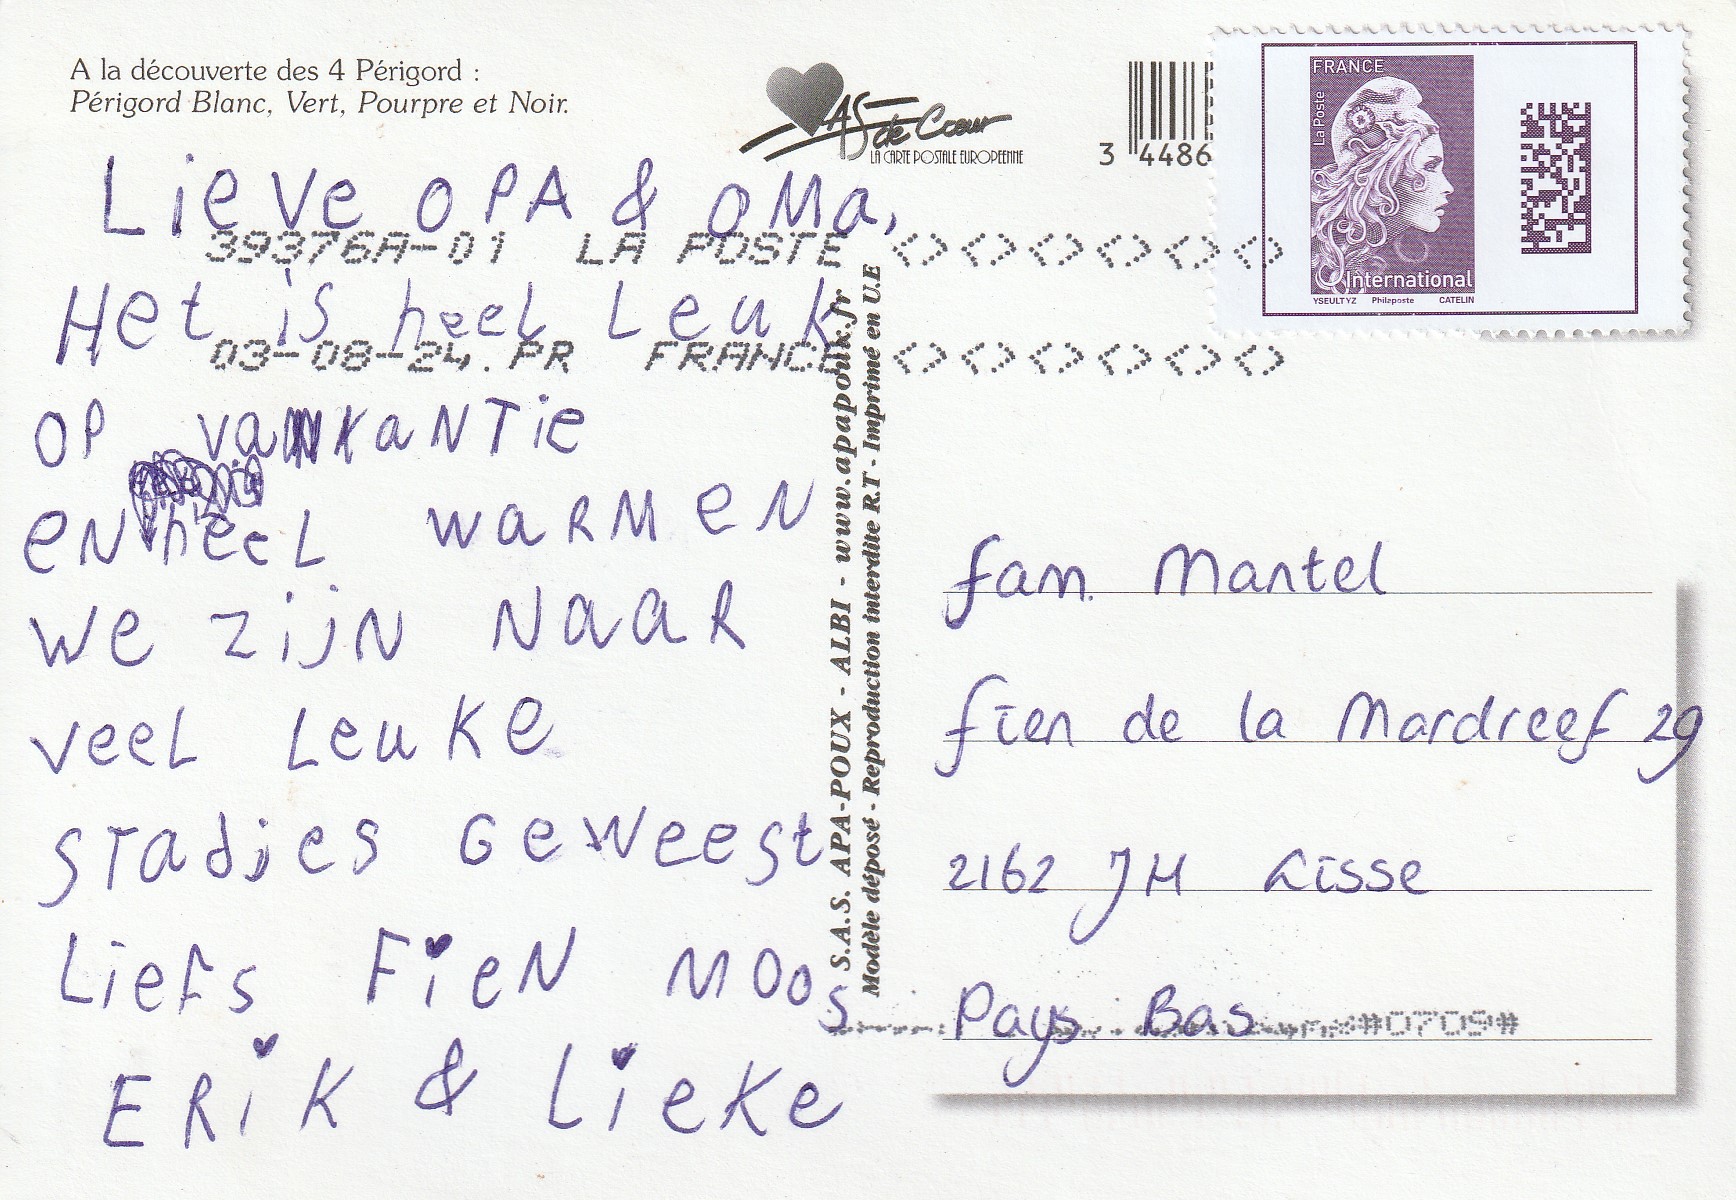 A la découverte des 4 Périgord :
Périgord Blanc, Vert, Pourpre et Noir.
As de Cœur
LA CARTE POSTALE EUROPEENNE
3 4486
FRANCE
La Poste
International
YSEULT YZ Philaposte CATELIN
39376A-01 LA POSTE
03-08-24.PR FRANCE
Lieve OPA & OMa,
Het is heel Leuk
OP vankantie
en heel warmen
we zijn Naar
veel Leuke
stadjes Geweest
Liefs Fien Moos
Erik & Lieke
S.A.S. APA-POUX - ALBI - www.apapoux.fr
Modèle déposé - Reproduction interdite R.T - Imprimé en U.E
fam. Mantel
fien de la Mardreef 29
2162 JH Lisse
Pays Bas
#0709#